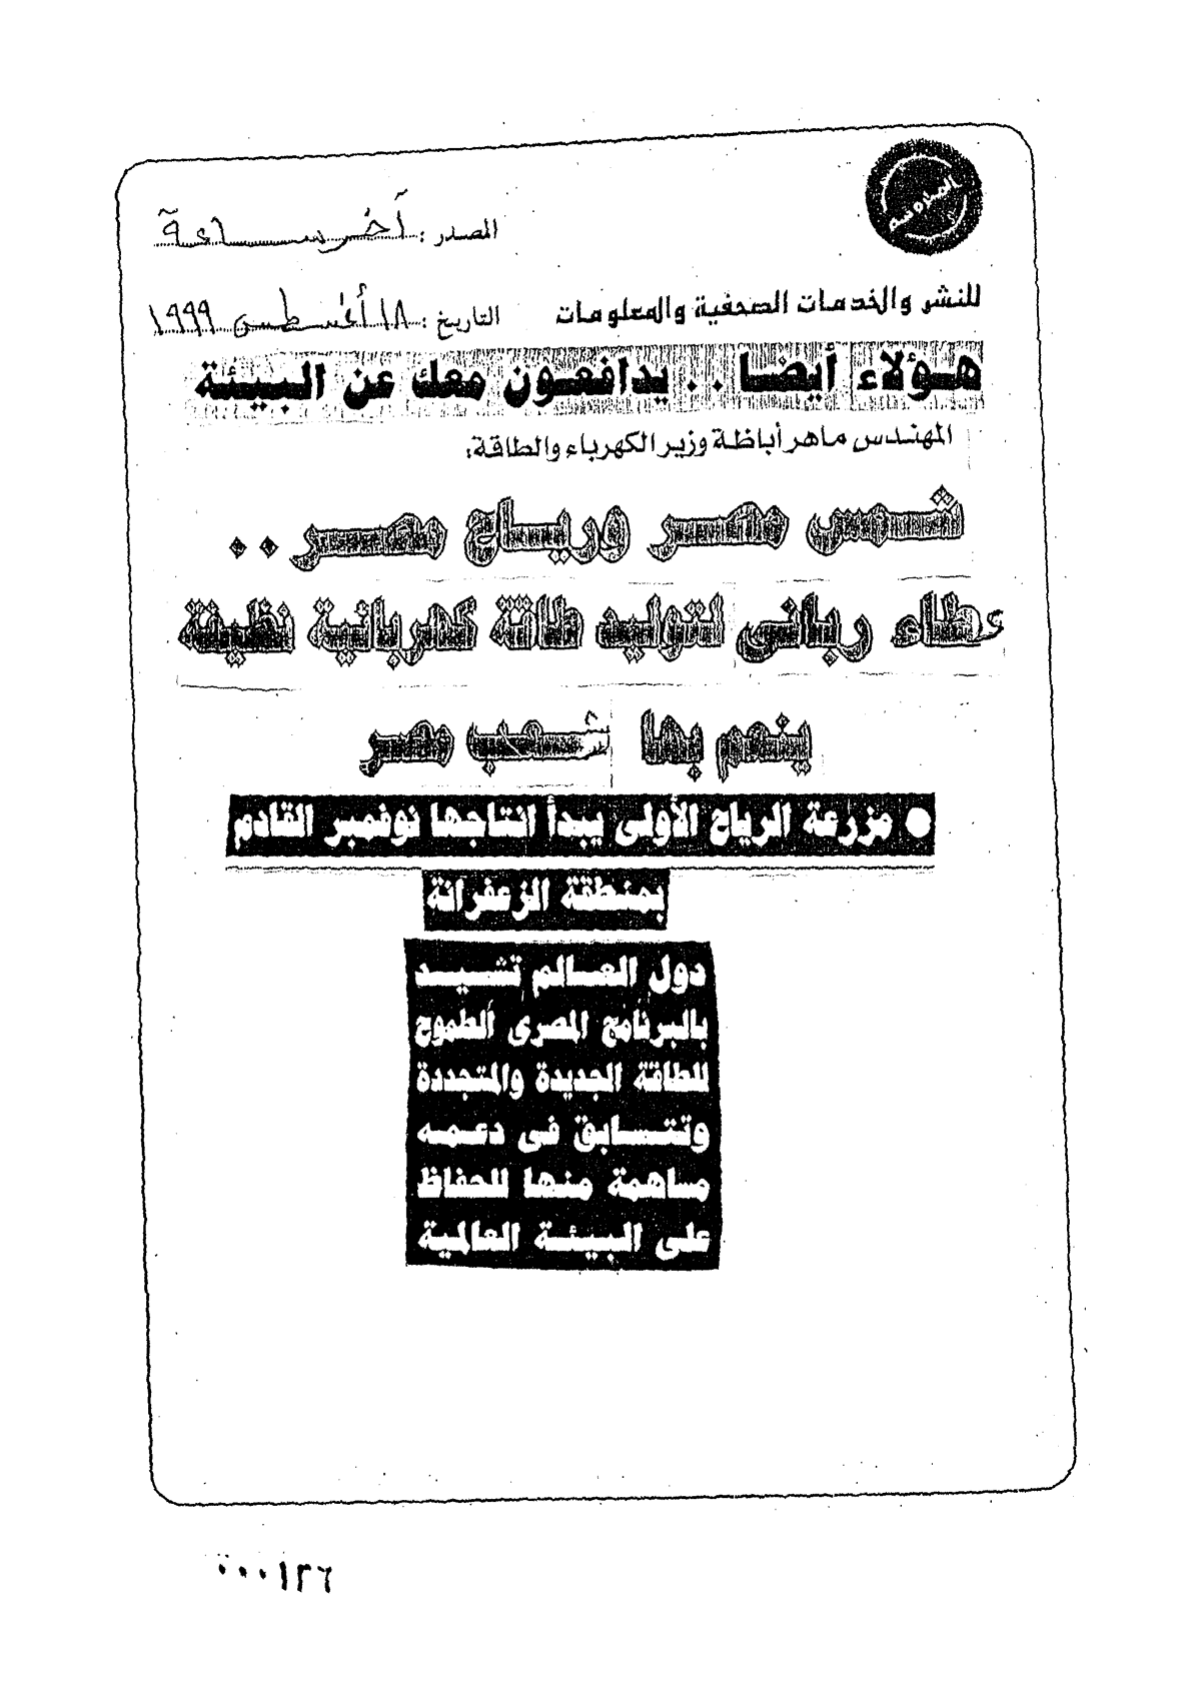 المصدر : آخر ساعة
للنشر والخدمات الصحفية والمعلومات
التاريخ : ١٨ أغسطس ١٩٩٩
هـؤلاء أيضـا . . يدافعـون معك عن البـيـئـة
المهندس ماهر أباظة وزير الكهرباء والطاقة:
شمس مصر ورياح مصر ..
عطاء ربانى لتوليد طاقة كهربائية نظيفة
ينعم بها شعب مصر
● مزرعة الرياح الأولى يبدأ انتاجها نوفمبر القادم
بمنطقة الزعفرانة
دول العـالم تشـيـد
بالبرنامج المصرى الطموح
للطاقة الجديدة والمتجددة
وتتـسـابق فى دعـمـه
مساهمة منها للحفاظ
على البـيـئـة العالمية
٠٠٠١٣٦